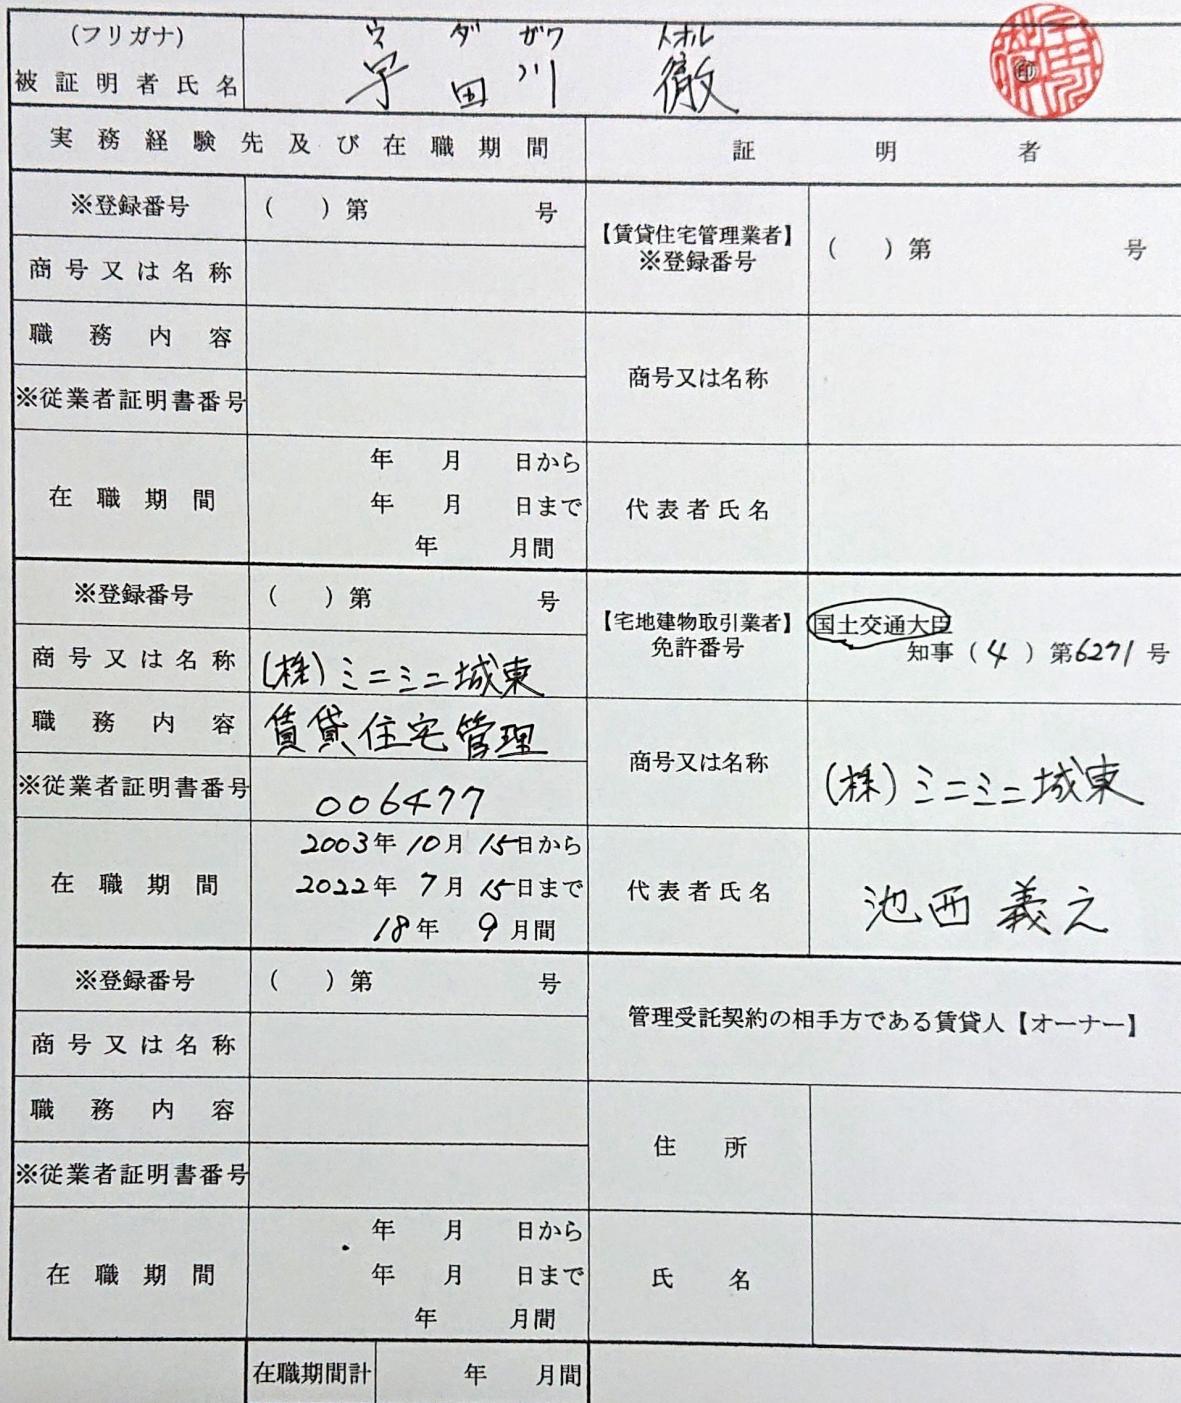 (フリガナ) ウ ダ ガワ トオル
被証明者氏名 宇田川 徹 印
実務経験先及び在職期間 証明者
※登録番号 ( )第 号
商号又は名称
職務内容
※従業者証明書番号
在職期間
年 月 日から
年 月 日まで
年 月間
【賃貸住宅管理業者】
※登録番号
( )第 号
商号又は名称
代表者氏名
※登録番号 ( )第 号
商号又は名称 (株)ミニミニ城東
職務内容 賃貸住宅管理
※従業者証明書番号 006477
在職期間
2003年10月15日から
2022年7月15日まで
18年 9月間
【宅地建物取引業者】
免許番号
国土交通大臣
知事(4)第6271号
商号又は名称 (株)ミニミニ城東
代表者氏名 池西義之
※登録番号 ( )第 号
商号又は名称
職務内容
※従業者証明書番号
在職期間
年 月 日から
年 月 日まで
年 月間
管理受託契約の相手方である賃貸人【オーナー】
住所
氏名
在職期間計 年 月間